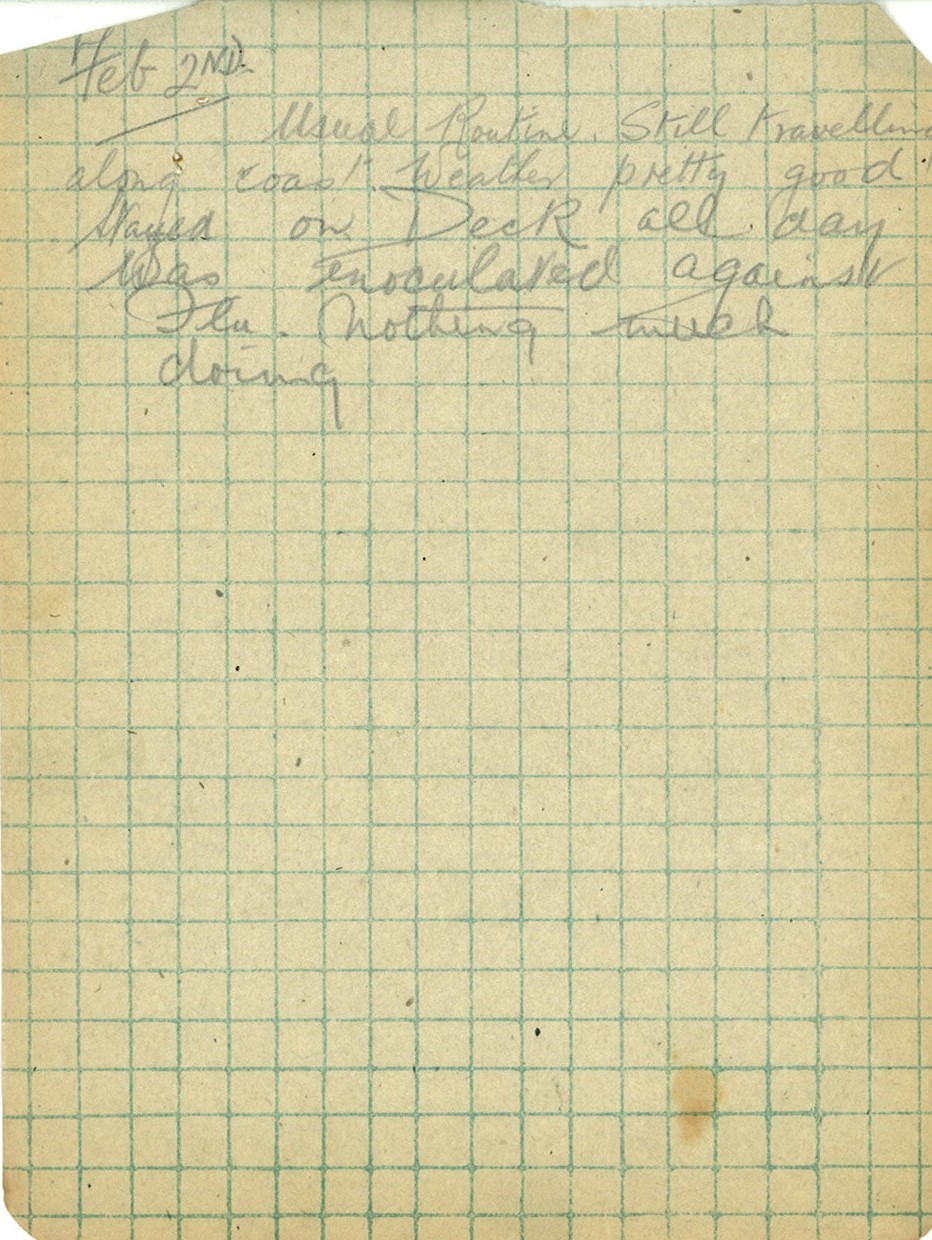 Feb 2ND.
Usual Routine. Still travelling
along coast. Weather pretty good
Stayed on Deck all day
Was enoculated against
Flu. Nothing much
doing